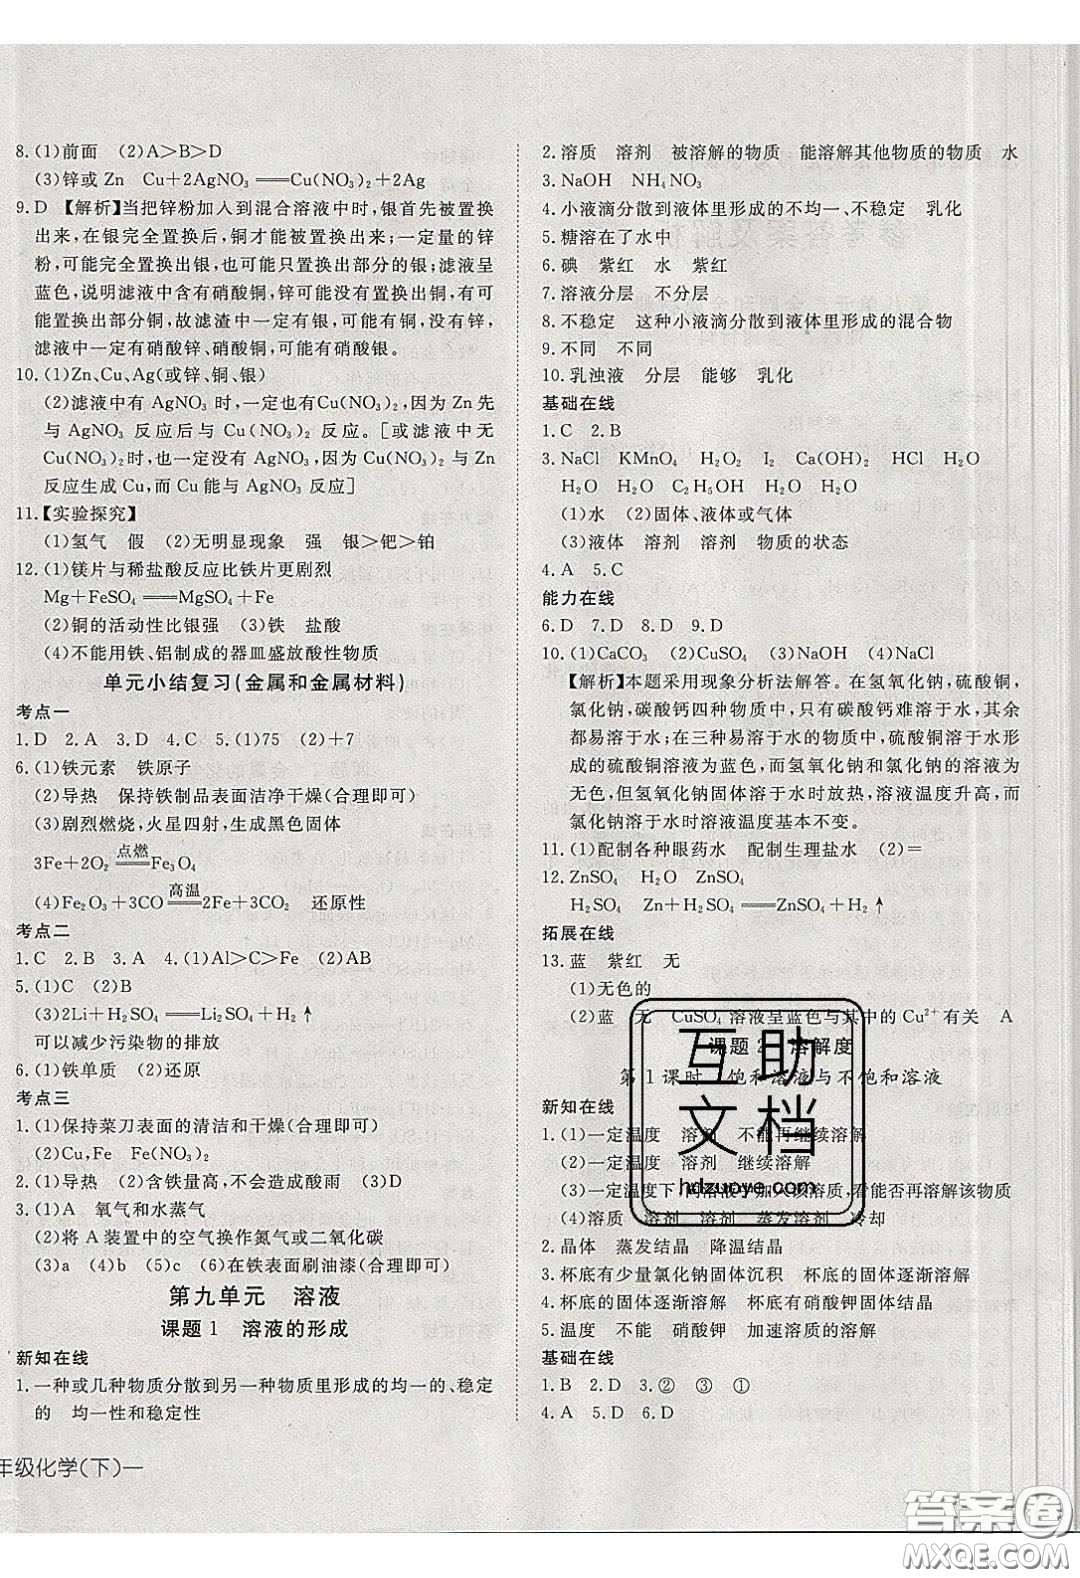 8.(1)前面　(2)A＞B＞D
(3)锌或Zn　Cu＋2AgNO₃══Cu(NO₃)₂＋2Ag
9.D　【解析】当把锌粉加入到混合溶液中时,银首先被置换
出来,在银完全置换后,铜才能被置换出来;一定量的锌
粉,可能完全置换出银,也可能只置换出部分的银;滤液呈
蓝色,说明滤液中含有硝酸铜,锌可能没有置换出铜,可能
置换出部分铜,故滤渣中一定有银,可能有铜,没有锌,
滤液中一定有硝酸锌、硝酸铜,可能有硝酸银。
10.(1)Zn、Cu、Ag(或锌、铜、银)
(2)滤液中有 AgNO₃ 时,一定也有Cu(NO₃)₂,因为 Zn先
与 AgNO₃ 反应后与 Cu(NO₃)₂ 反应。[或滤液中无
Cu(NO₃)₂时,也一定没有 AgNO₃,因为 Cu(NO₃)₂与 Zn
反应生成 Cu,而 Cu 能与 AgNO₃ 反应]
11.【实验探究】
(1)氢气　假　(2)无明显现象　强　银＞钯＞铂
12.(1)镁片与稀盐酸反应比铁片更剧烈
Mg＋FeSO₄══MgSO₄＋Fe
(2)铜的活动性比银强　(3)铁　盐酸
(4)不能用铁、铝制成的器皿盛放酸性物质
单元小结复习(金属和金属材料)
考点一
1.D　2.A　3.D　4.C　5.(1)75　(2)＋7
6.(1)铁元素　铁原子
(2)导热　保持铁制品表面洁净干燥(合理即可)
(3)剧烈燃烧,火星四射,生成黑色固体
3Fe＋2O₂ 点燃══ Fe₃O₄
(4)Fe₂O₃＋3CO 高温══ 2Fe＋3CO₂　还原性
考点二
1.C　2.B　3.A　4.(1)Al＞C＞Fe　(2)AB
5.(1)C　(2)B
(3)2Li＋H₂SO₄══Li₂SO₄＋H₂↑
可以减少污染物的排放
6.(1)铁单质　(2)还原
考点三
1.(1)保持菜刀表面的清洁和干燥(合理即可)
(2)Cu,Fe　Fe(NO₃)₂
2.(1)导热　(2)含铁量高,不会造成酸雨　(3)D
3.(1)A　氧气和水蒸气
(2)将 A 装置中的空气换作氮气或二氧化碳
(3)a　(4)b　(5)c　(6)在铁表面刷油漆(合理即可)
第九单元　溶液
课题1　溶液的形成
新知在线
1.一种或几种物质分散到另一种物质里形成的均一的、稳定
的　均一性和稳定性
年级化学(下)—
2.溶质　溶剂　被溶解的物质　能溶解其他物质的物质　水
3.NaOH　NH₄NO₃
4.小液滴分散到液体里形成的不均一、不稳定　乳化
5.糖溶在了水中
6.碘　紫红　水　紫红
7.溶液分层　不分层
8.不稳定　这种小液滴分散到液体里形成的混合物
9.不同　不同
10.乳浊液　分层　能够　乳化
基础在线
1.C　2.B
3.NaCl　KMnO₄　H₂O₂　I₂　Ca(OH)₂　HCl　H₂O
H₂O　H₂O　C₂H₅OH　H₂O　H₂O
(1)水　(2)固体、液体或气体
(3)液体　溶剂　溶剂　物质的状态
4.A　5.C
能力在线
6.D　7.D　8.D　9.D
10.(1)CaCO₃　(2)CuSO₄　(3)NaOH　(4)NaCl
【解析】本题采用现象分析法解答。在氢氧化钠,硫酸铜,
氯化钠,碳酸钙四种物质中,只有碳酸钙难溶于水,其余
都易溶于水;在三种易溶于水的物质中,硫酸铜溶于水形
成的硫酸铜溶液为蓝色,而氢氧化钠和氯化钠的溶液为
无色,但氢氧化钠固体溶于水时放热,溶液温度升高,而
氯化钠溶于水时溶液温度基本不变。
11.(1)配制各种眼药水　配制生理盐水　(2)＝
12.ZnSO₄　H₂O　ZnSO₄
H₂SO₄　Zn＋H₂SO₄══ZnSO₄＋H₂↑
拓展在线
13.蓝　紫红　无
(1)无色的
(2)蓝　无　CuSO₄ 溶液呈蓝色与其中的 Cu²⁺有关　A
课题2　溶解度
第1课时　饱和溶液与不饱和溶液
新知在线
1.(1)一定温度　溶剂　不能再继续溶解
(2)一定温度　溶剂　继续溶解
(3)一定温度下,向溶液中加入该溶质,看能否再溶解该物质
(4)溶质　溶剂　溶剂　蒸发溶剂　冷却
2.晶体　蒸发结晶　降温结晶
3.杯底有少量氯化钠固体沉积　杯底的固体逐渐溶解
4.杯底的固体逐渐溶解　杯底有硝酸钾固体结晶
5.温度　不能　硝酸钾　加速溶质的溶解
基础在线
1.B　2.D　3.②　③　①
4.A　5.D　6.D
互助
文档
hdzuoye.com
答案圈
MXQE.COM